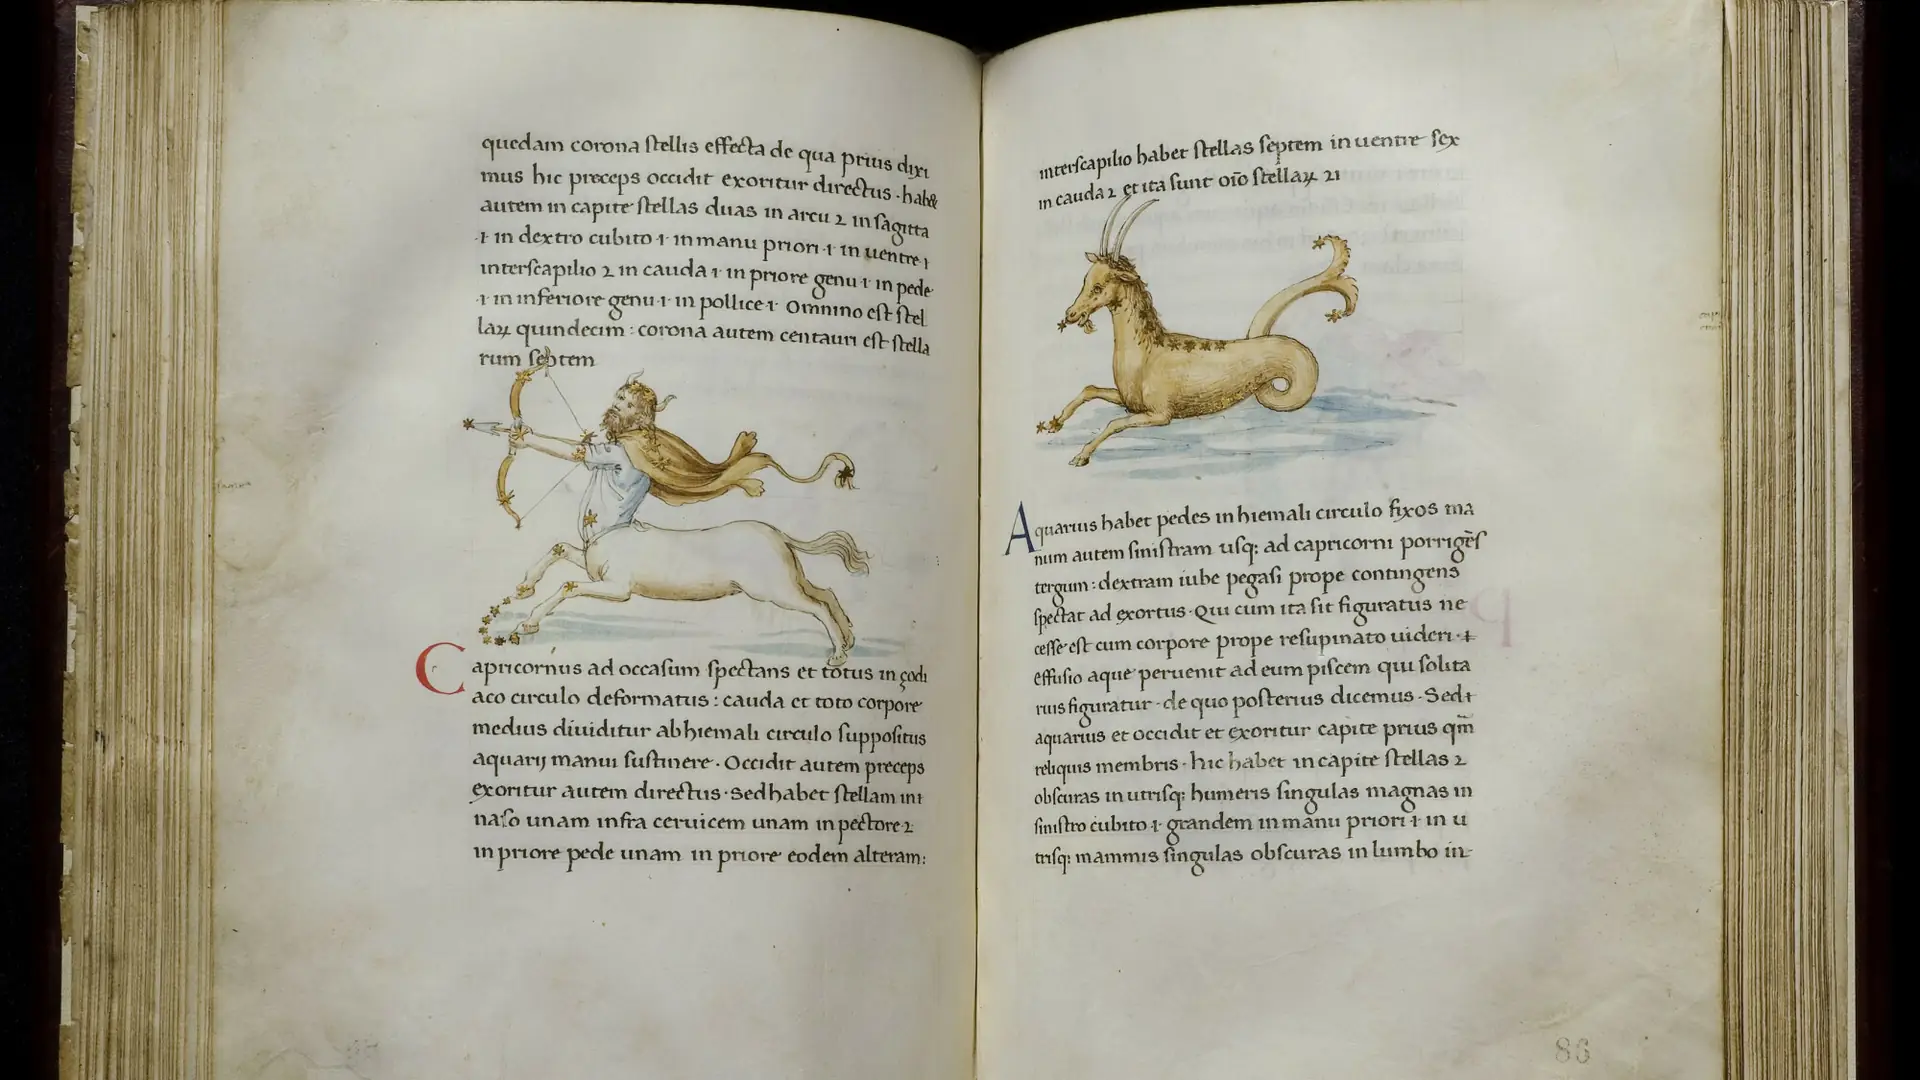 quedam corona stellis effecta de qua prius dixi
mus hic preceps occidit exoritur directus · hab&
autem in capite stellas duas in arcu 2 in sagitta
·1· in dextro cubito ·1· in manu priori ·1· in uentre 1
interscapilio 2 in cauda 1· in priore genu ·1· in pede
·1· in inferiore genu ·1· in pollice ·1· Omnino est stel
laꝝ quindecim : corona autem centauri est stella
rum septem
Capricornus ad occasum spectans et totus in çodi
aco circulo deformatus : cauda et toto corpore
medius diuiditur ab hiemali circulo suppositus
aquarij manui sustinere · Occidit autem preceps
exoritur autem directus · Sed habet stellam in 1
naso unam infra ceruicem unam in pectore 2
in priore pede unam in priore eodem alteram :
interscapilio habet stellas septem in uentre sex
in cauda 2 et ita sunt oīo stellaꝝ 21
Aquarius habet pedes in hiemali circulo fixos ma
num autem sinistram usq; ad capricorni porrigēs
tergum : dextram iube pegasi prope contingens
spectat ad exortus · Qui cum ita sit figuratus ne
cesse est cum corpore prope resupinato uideri ·
effusio aque peruenit ad eum piscem qui solita
rius figuratur · de quo posterius dicemus · Sed
aquarius et occidit et exoritur capite prius qm̄
reliquis membris · hic habet in capite stellas 2
obscuras in utrisq; humeris singulas magnas in
sinistro cubito ·1· grandem in manu priori ·1· in u
trisq; mammis singulas obscuras in lumbo in
86